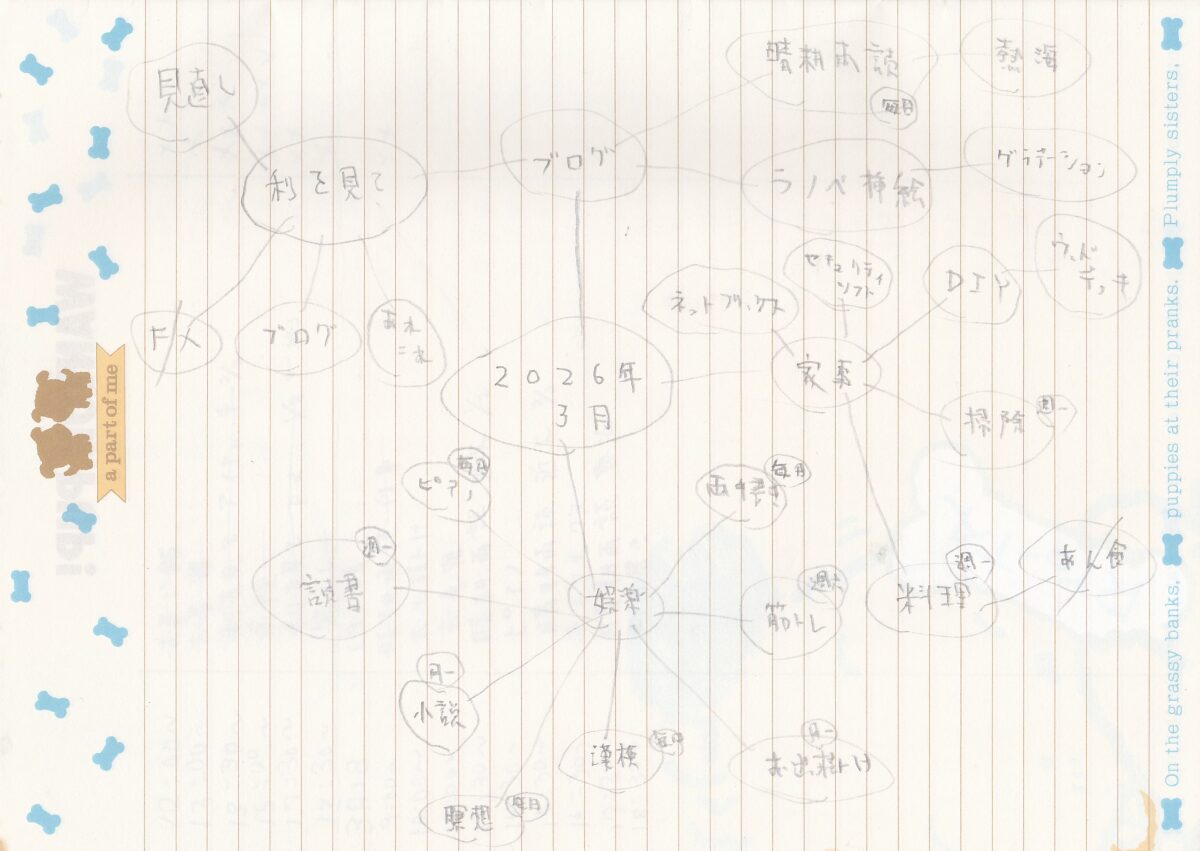 見直し
利を見て
ブログ
晴耕雨読
毎日
熱海
ラノベ挿絵
グラデーション
FX
ブログ
あれ
これ
2026年
3月
ネットブックス
セキュリティ
ソフト
DIY
ウッド
デッキ
家事
掃除
週一
料理
週一
あん食
娯楽
ピアノ
毎日
読書
週一
小説
月一
瞑想
毎日
漢検
毎日
お出掛け
月一
筋トレ
毎日
a part of me
On the grassy banks, puppies at their pranks. Plumply sisters,